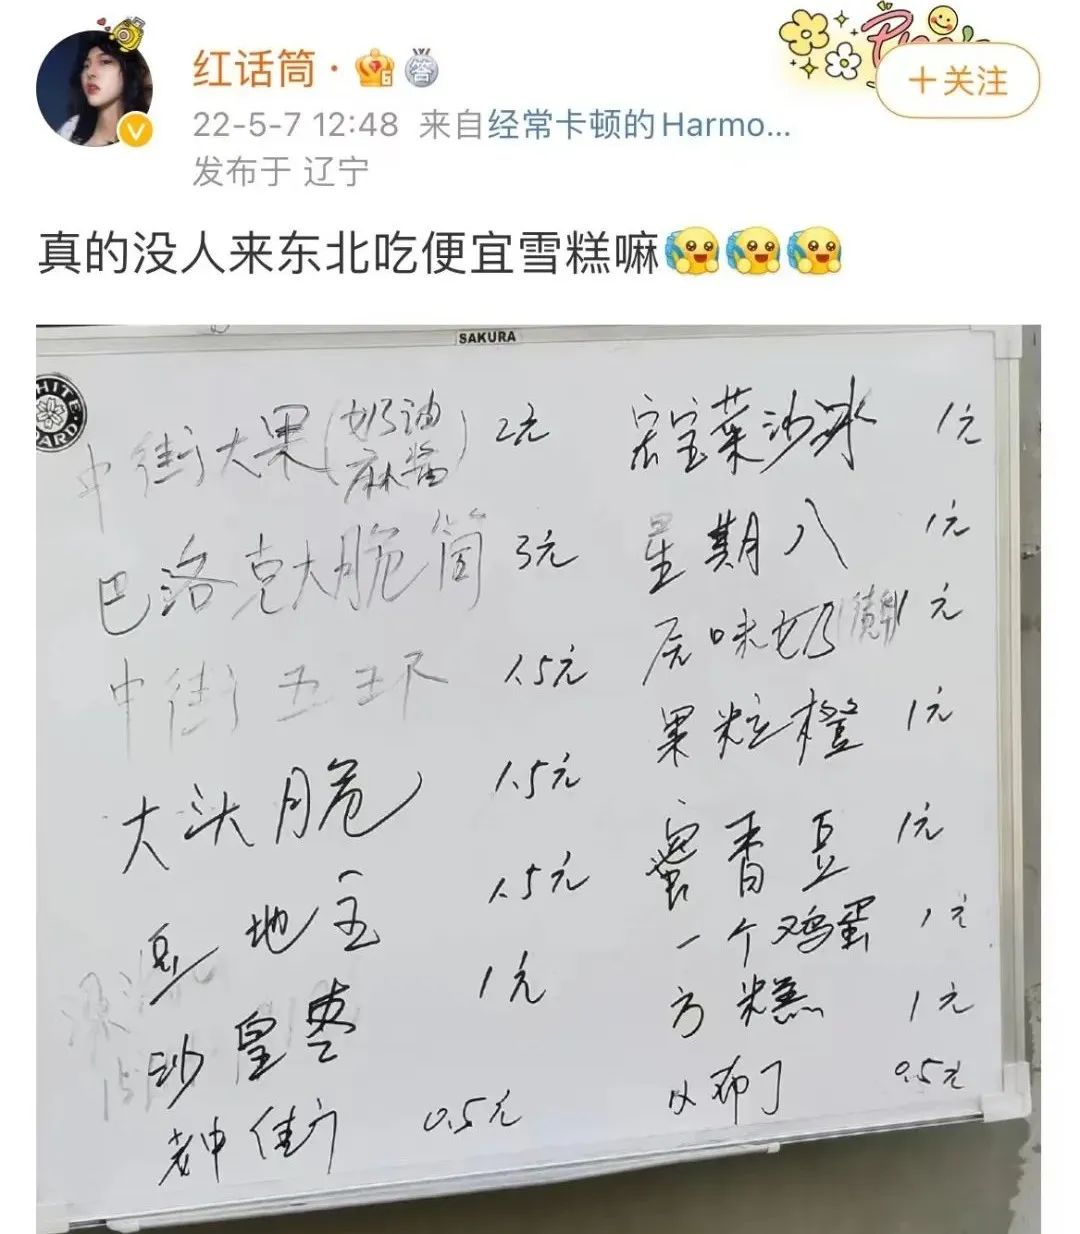 红话筒
+关注
22-5-7 12:48 来自经常卡顿的Harmo...
发布于 辽宁
真的没人来东北吃便宜雪糕嘛
SAKURA
中街大果(奶油麻酱) 2元
巴洛克大脆筒 3元
中街五环 1.5元
大头脆 1.5元
豆地主 1.5元
沙皇枣 1元
老中街 0.5元
宏宝莱沙冰 1元
星期八 1元
原味奶 1元
果粒橙 1元
蜜香豆 1元
一个鸡蛋 1元
方糕 1元
布丁 0.5元